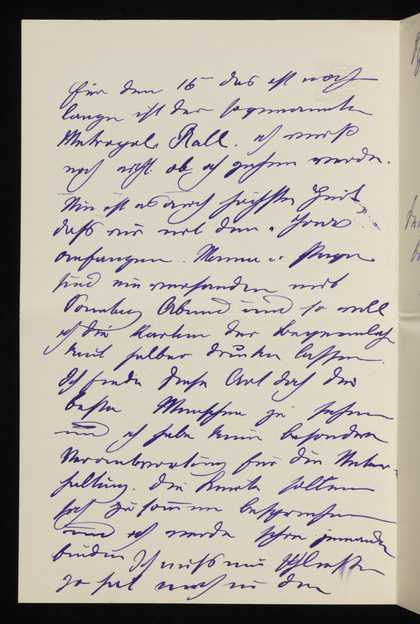 für den 15 das ist noch
lange ist der sogenannte
Metropol Ball. ich weiß
noch nicht ob ich gehen werde.
Nun ist es auch höchste Zeit
daß wir mit den "Jours"
anfangen.
sind einverstanden mit
Sonntag Abend und so will
ich die Karten der Bequemlich
keit halber drucken lassen.
Ich finde diese Art doch die
beste Menschen zu sehen
und ich habe keine besondere
Verantwortung für die Unter-
haltung. Die Leute sollen
sich zusammen besprechen
und ich werde schon jemanden
finden Ich muß nun schließen
so hat noch in den